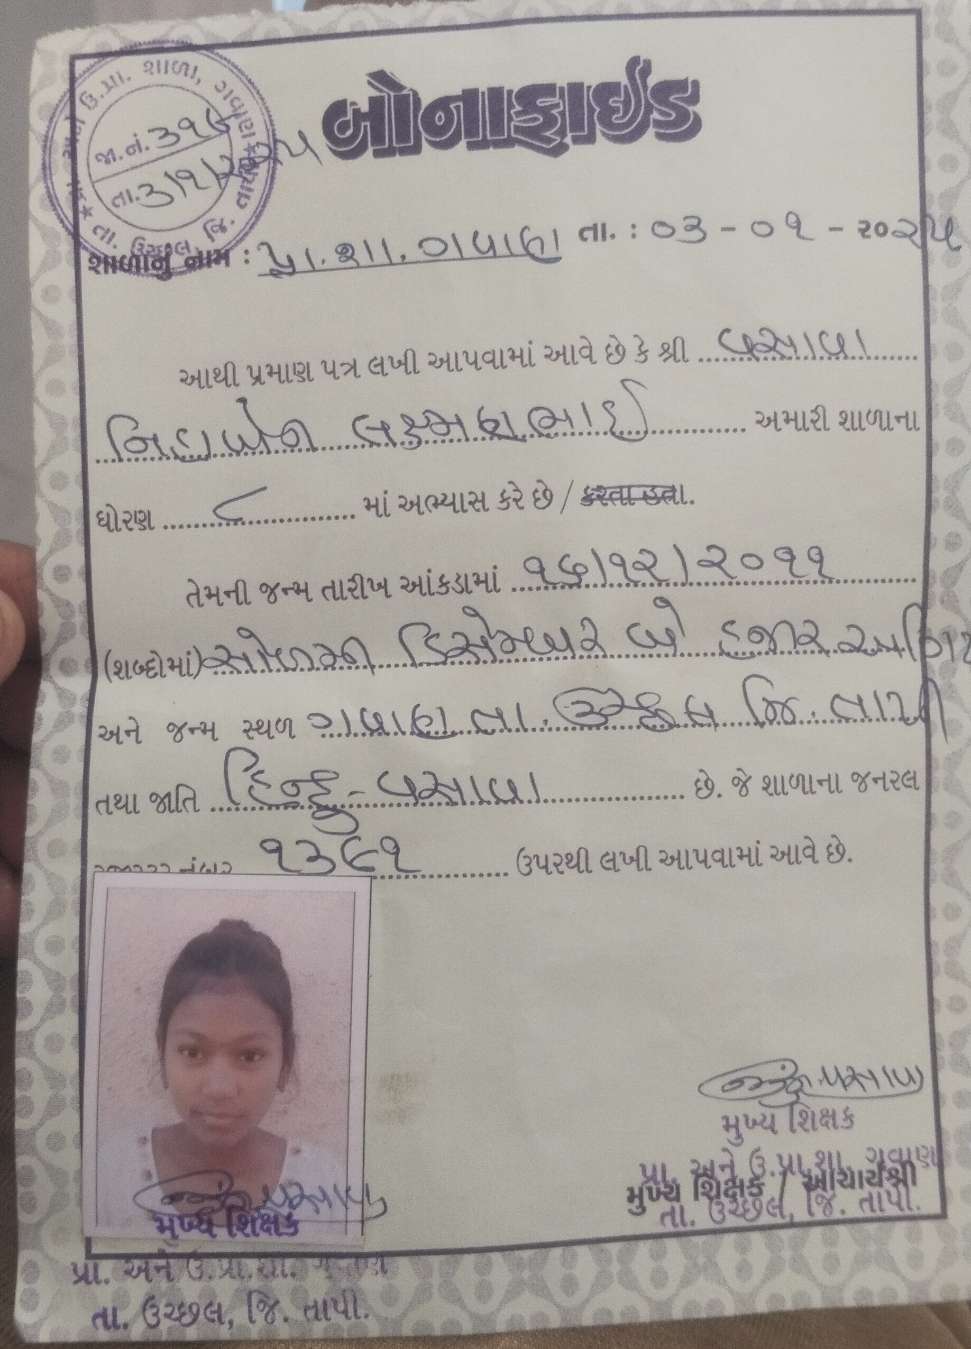 પ્રા. અને ઉ.પ્રા. શાળા, ગવાણ
જા.નં. ૩૧૬
તા. ૩/૧/૨૦૨૫
તા. ઉચ્છલ, જિ. તાપી
બોનાફાઈડ
શાળાનું નામ : પ્રા.શા. ગવાણ તા. : ૦૩ - ૦૧ - ૨૦૨૫
આથી પ્રમાણ પત્ર લખી આપવામાં આવે છે કે શ્રી વસાવા
લક્ષ્મણભાઈ અમારી શાળાના
ધોરણ ૮ માં અભ્યાસ કરે છે / કરતા હતા.
તેમની જન્મ તારીખ આંકડામાં ૧૬/૧૨/૨૦૧૧
(શબ્દોમાં) સોળમી ડિસેમ્બર બે હજાર અગિયાર
અને જન્મ સ્થળ ગવાણ તા. ઉચ્છલ જિ. તાપી
તથા જાતિ હિન્દુ - વસાવા છે. જે શાળાના જનરલ
નંબર ૧૩૯૧ ઉપરથી લખી આપવામાં આવે છે.
મુખ્ય શિક્ષક
પ્રા. અને ઉ.પ્રા.શા. ગવાણ
મુખ્ય શિક્ષક / આચાર્યશ્રી
તા. ઉચ્છલ, જિ. તાપી.
મુખ્ય શિક્ષક
પ્રા. અને ઉ.પ્રા.શા. ગવાણ
તા. ઉચ્છલ, જિ. તાપી.